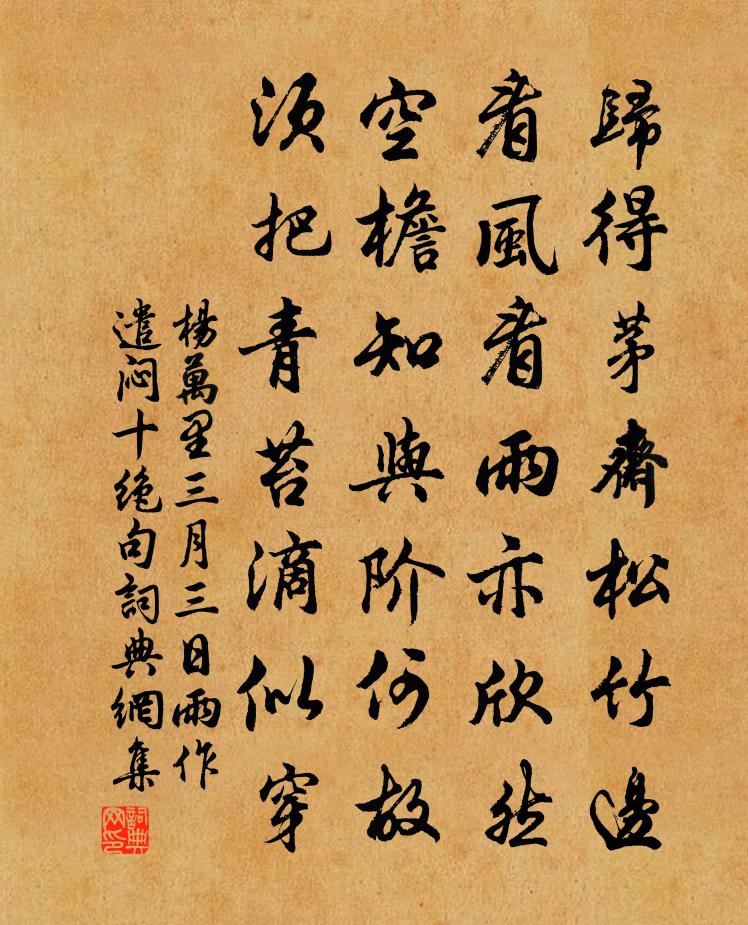 歸得茅齋松竹邊
看風看雨亦欣然
空檐知與阶何故
須把青苔滴似穿
楊萬里三月三日雨作
遣闷十絶句詞典網集
詞典网印